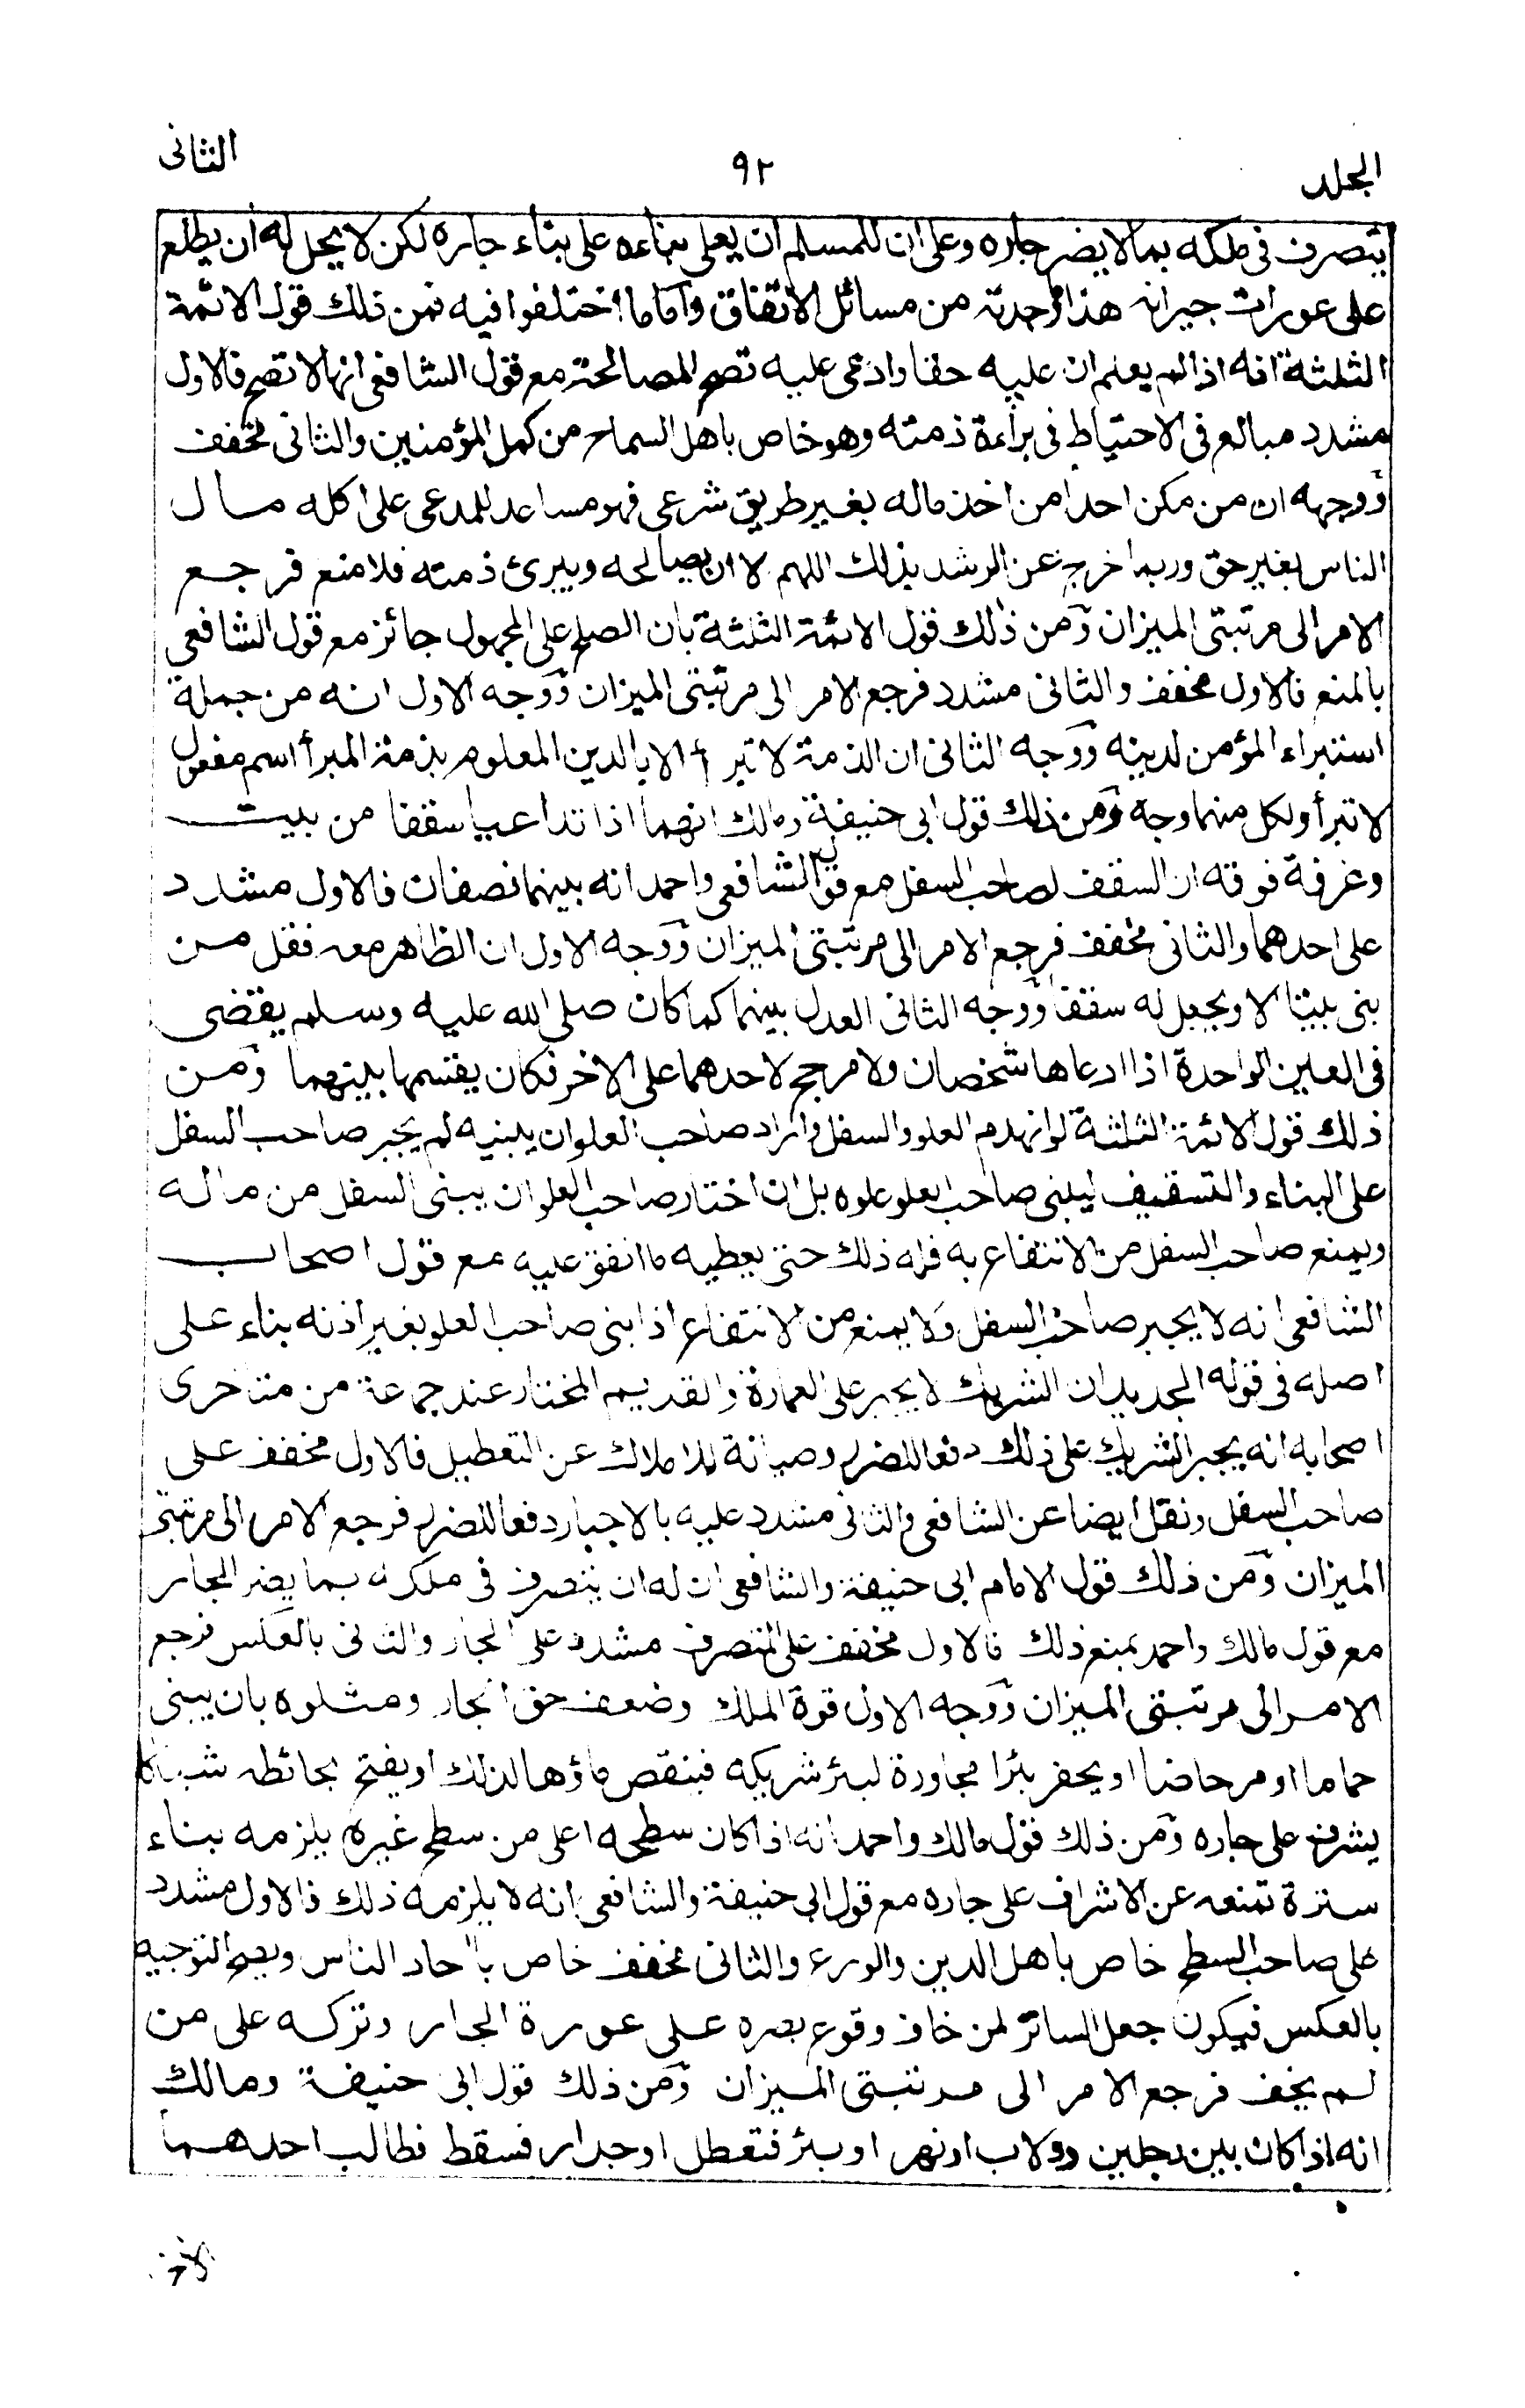 المجلد ٩٢ الثانى
يتصرف فى ملكه بما لا يضر جاره وعلى ان للمسلم ان يعلى بناءه على بناء جاره لكن لا يحل له ان يطلع
على عورات جيرانه هذا ما وجدته من مسائل الاتفاق وآما ما اختلفوا فيه فمن ذلك قول الائمة
الثلثة انه اذا لم يعلم ان عليه حقا وادعى عليه تصح المصالحة مع قول الشافعى انها لا تصح فالاول
مشدد مبالغ فى الاحتياط فى براءة ذمته وهو خاص باهل السماح من كمل المؤمنين والثانى مخفف
وٓوجهه ان من مكن احدا من اخذ ماله بغير طريق شرعى فهو مساعد للمدعى على اكله مال
الناس بغير حق وربما خرج عن الرشد بذلك اللهم لا ان يصالحه ويبرئ ذمته فلا منع فرجع
الامر الى مرتبتى الميزان وٓمن ذلك قول الائمة الثلثة بان الصلح على المجهول جائز مع قول الشافعى
بالمنع فالاول مخفف والثانى مشدد فرجع الامر الى مرتبتى الميزان وٓوجه الاول انه من جملة
استبراء المؤمن لدينه وٓوجه الثانى ان الذمة لا تبرأ الا بالدين المعلوم بذمة المبرأ اسم مفعول
لا تبرأ ولكل منهما وجه وٓمن ذلك قول ابى حنيفة ومالك انهما اذا تداعيا سقفا من بيت
وغرفة فوقه ان السقف لصاحب السفل مع قول الشافعى واحمد انه بينهما نصفان فالاول مشدد
على احدهما والثانى مخفف فرجع الامر الى مرتبتى الميزان وٓوجه الاول ان الظاهر معه فقل من
بنى بيتا الا ويجعل له سقفا وٓوجه الثانى العدل بينهما كما كان صلى الله عليه وسلم يقتضى
فى العين الواحدة اذا ادعاها شخصان ولا مرجح لاحدهما على الاخر فكان يقسمها بينهما وٓمن
ذلك قول الائمة الثلثة لو انهدم العلو والسفل واراد صاحب العلو ان يبنيه لم يجبر صاحب السفل
على البناء والتسقيف ليبنى صاحب العلو علوه بل ان اختار صاحب العلو ان يبنى السفل من ماله
ويمنع صاحب السفل من الانتفاع به فله ذلك حتى يعطيه ما انفق عليه مع قول اصحاب
الشافعى انه لا يجبر صاحب السفل ولا يمنع من الانتفاع اذا بنى صاحب العلو بغير اذنه بناء على
اصله فى قوله الجديد ان الشريك لا يجبر على العمارة والقديم المختار عند جماعة من متاخرى
اصحابه انه يجبر الشريك على ذلك دفعا للضرر وصيانة للاملاك عن التعطيل فالاول مخفف على
صاحب السفل ونقل ايضا عن الشافعى والثانى مشدد عليه بالاجبار دفعا للضرر فرجع الامر الى مرتبتى
الميزان وٓمن ذلك قول الامام ابى حنيفة والشافعى ان له ان يتصرف فى ملكه بما يضر الجار
مع قول مالك واحمد بمنع ذلك فالاول مخفف على المتصرف مشدد على الجار والثانى بالعكس فرجع
الامر الى مرتبتى الميزان وٓوجه الاول قوة الملك وضعف حق الجار ومثلوه بان يبنى
حماما او مرحاضا او يحفر بئرا مجاورة لبئر شريكه فينقص ماؤها لذلك او يفتح بحائطه شباكا
يشرف على جاره وٓمن ذلك قول مالك واحمد انه اذا كان سطحه اعلى من سطح غيره يلزمه بناء
سترة تمنعه عن الاشراف على جاره مع قول ابى حنيفة والشافعى انه لا يلزمه ذلك فالاول مشدد
على صاحب السطح خاص باهل الدين والورع والثانى مخفف خاص بآحاد الناس ويصح التوجيه
بالعكس فيكون جعل الساتر لمن خاف وقوع بصره على عورة الجار وتركه على من
لم يخف فرجع الامر الى مرتبتى الميزان وٓمن ذلك قول ابى حنيفة ومالك
انه اذا كان بين رجلين دولاب او نهر او بئر فتعطل او جدار فسقط فطالب احدهما
الاخر